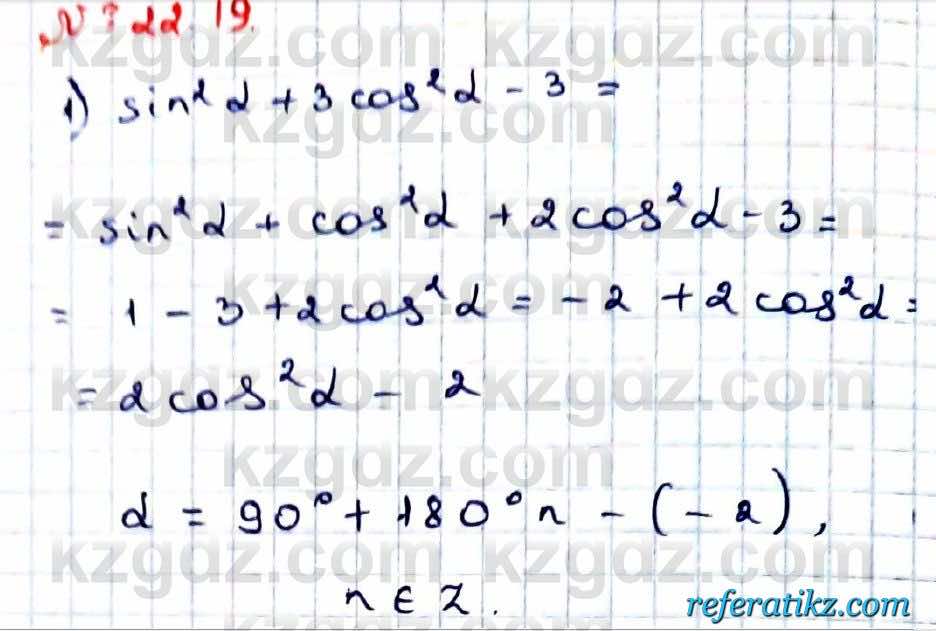 № 22.19.
1) sin²α + 3cos²α - 3 =
= sin²α + cos²α + 2cos²α - 3 =
= 1 - 3 + 2cos²α = -2 + 2cos²α =
= 2cos²α - 2
α = 90° + 180°n - (-2),
n ∈ Z.
kzgdz.com
referatikz.com